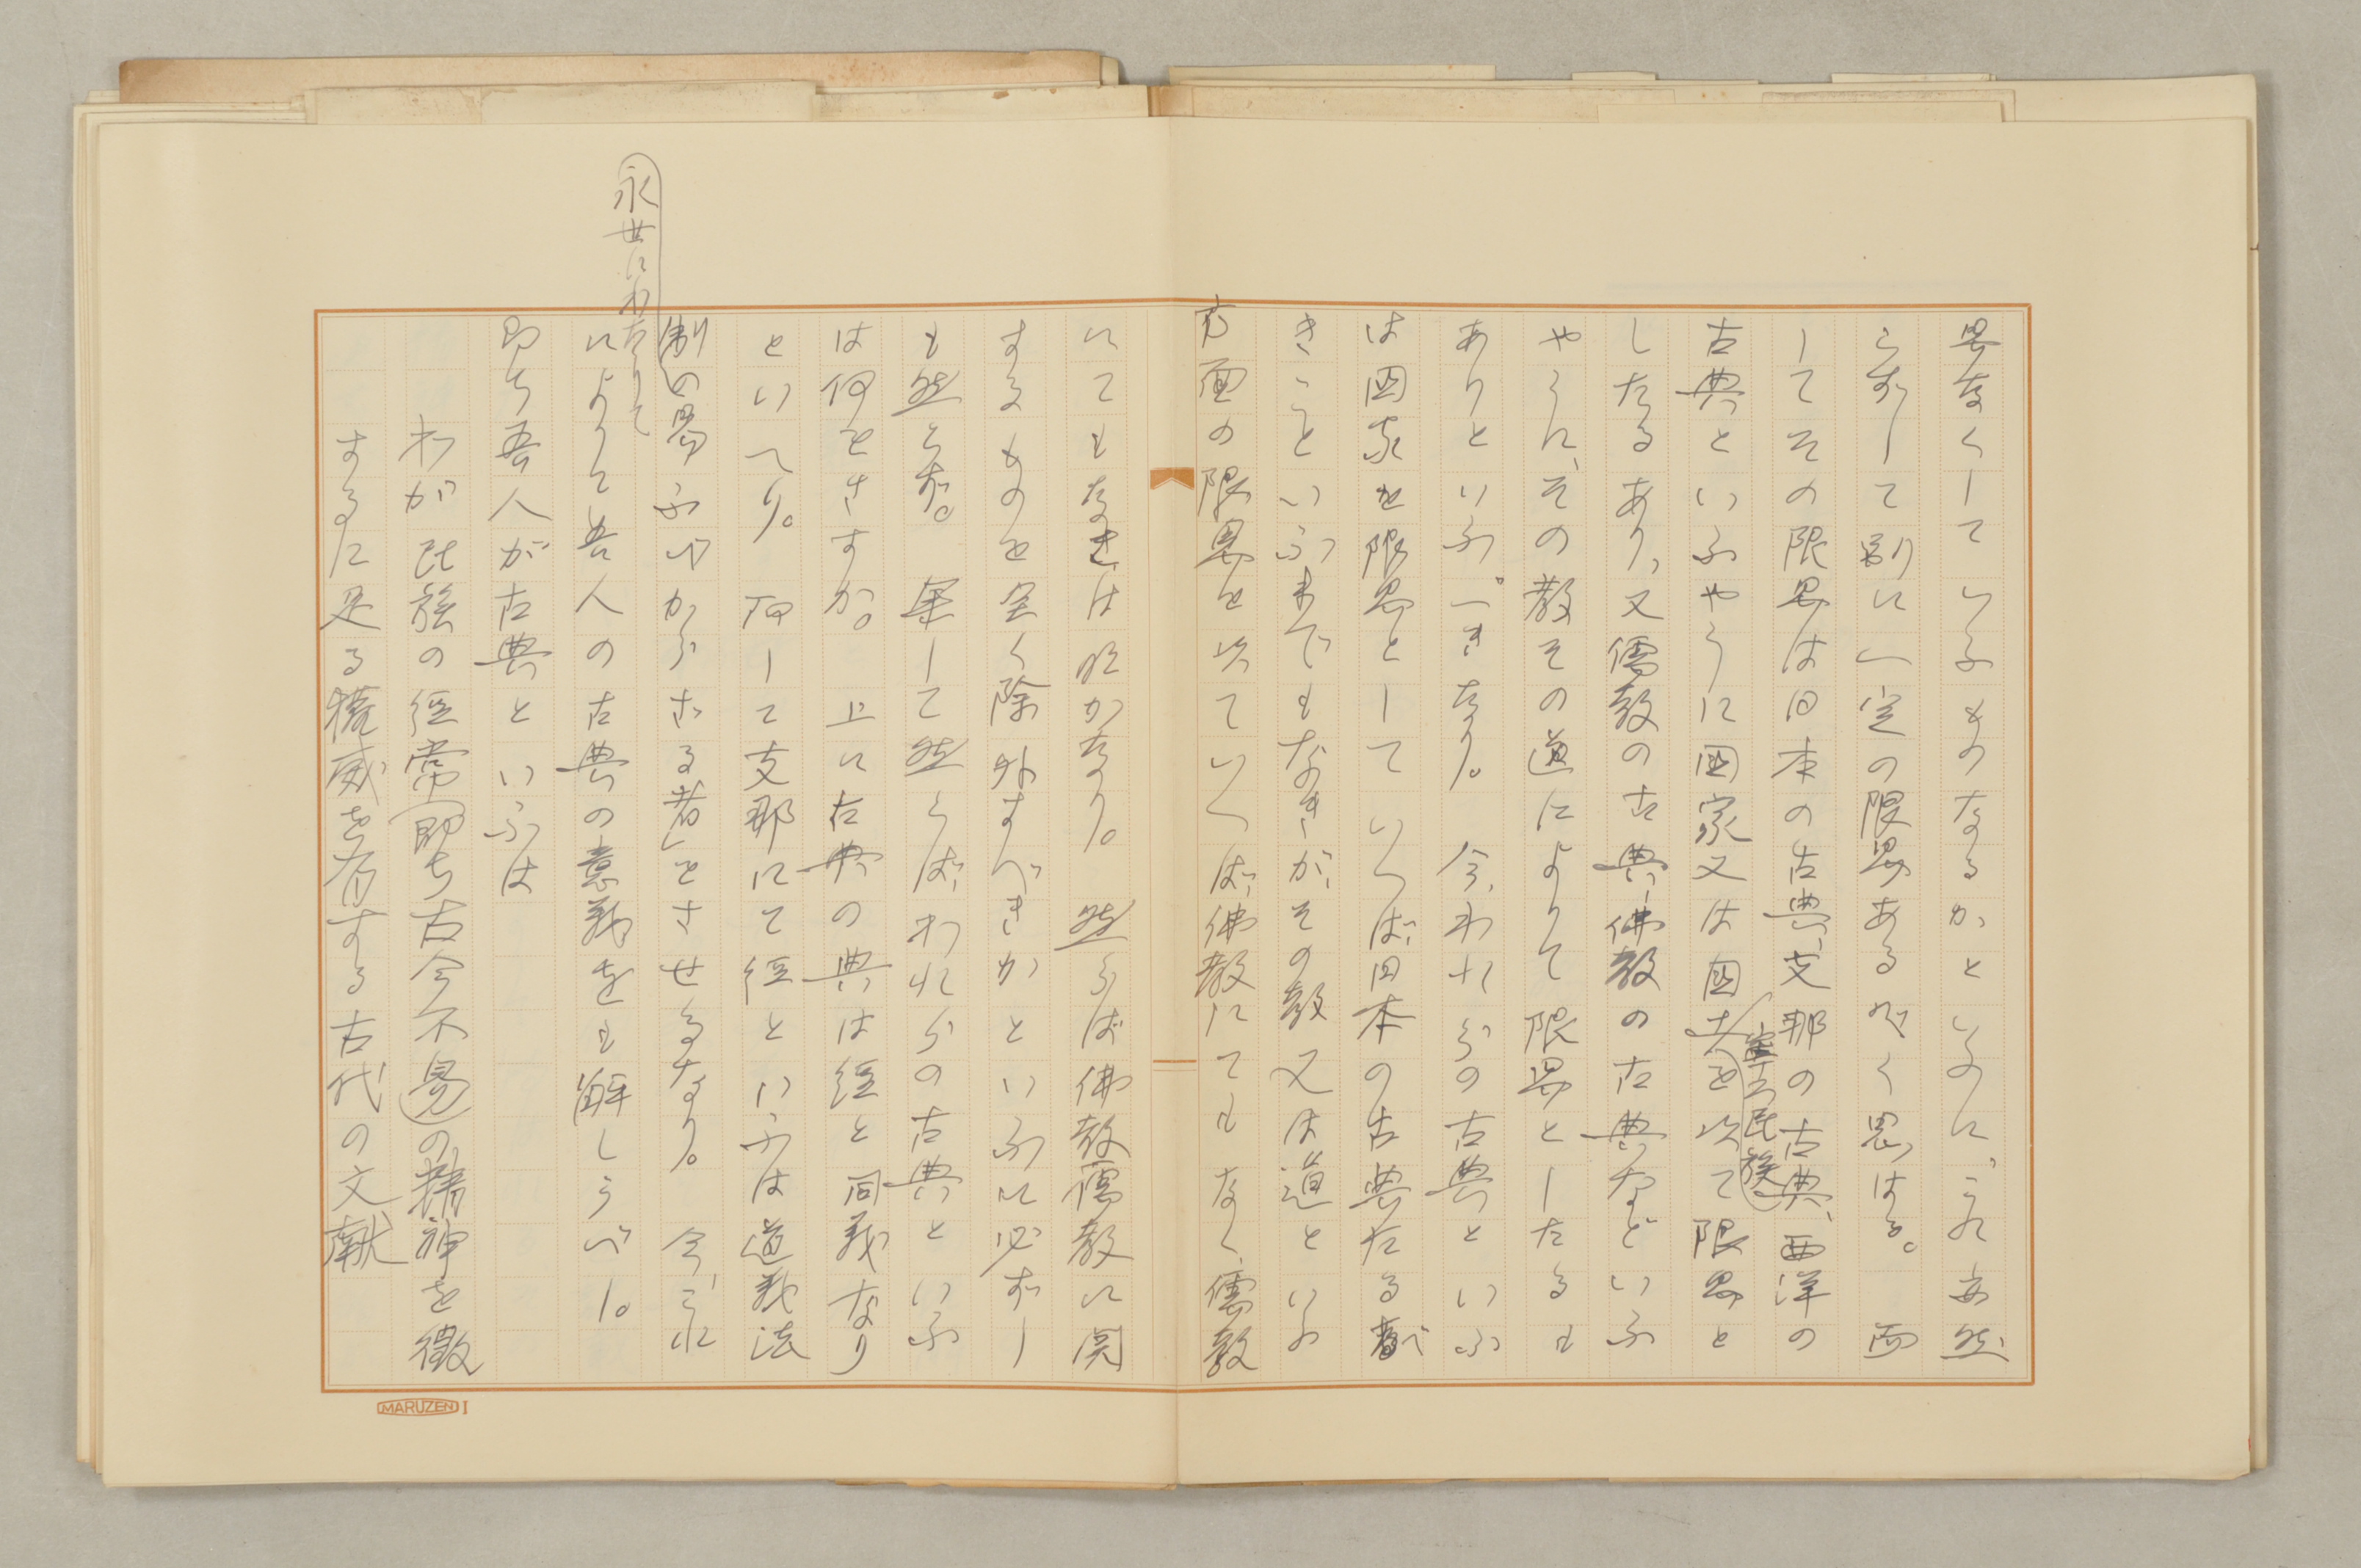 界なくしていふものなるかといふに、これ亦然
らずして別に一定の限界あるべく思はる。而
してその限界は日本の古典、支那の古典、西洋の
古典といふやうに国家又は民族を以て限界と
したるあり、又儒教の古典、佛教の古典などいふ
やうに、その教その道によりて限界としたるも
ありといふべきなり。今、われらの古典といふ
は国家を限界としていへば、日本の古典たるべ
きこといふまでもなきが、その教又は道といふ
方面の限界を以ていへば、佛教にてもなく、儒教
にてもなきは明かなり。然らば佛教儒教に関
するものを全く除外すべきかといふに必ずし
も然らず。果して然らば、われらの古典といふ
は何をさすか。上に古典の典は経と同義なり
といへり。而して支那にて経といふは道義法
制の永世にわたりて易ふべからざる者をさせるなり。今、これ
によりて吾人の古典の意義をも解しうべし。
即ち吾人が古典といふは
わが民族の經常即ち古今不易の精神を徴
するに足る権威を有する古代の文献
MARUZEN I